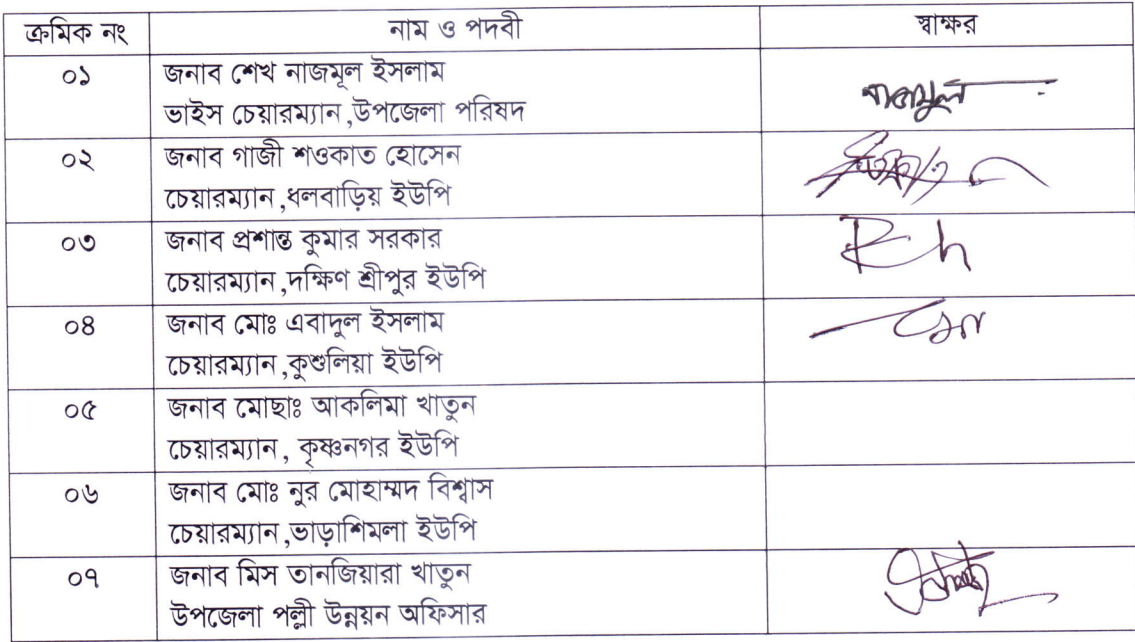 ক্রমিক নং নাম ও পদবী স্বাক্ষর
০১ জনাব শেখ নাজমূল ইসলাম
ভাইস চেয়ারম্যান,উপজেলা পরিষদ
নাজমুল
০২ জনাব গাজী শওকাত হোসেন
চেয়ারম্যান,ধলবাড়িয় ইউপি
০৩ জনাব প্রশান্ত কুমার সরকার
চেয়ারম্যান,দক্ষিণ শ্রীপুর ইউপি
০৪ জনাব মোঃ এবাদুল ইসলাম
চেয়ারম্যান,কুশুলিয়া ইউপি
০৫ জনাব মোছাঃ আকলিমা খাতুন
চেয়ারম্যান, কৃষ্ণনগর ইউপি
০৬ জনাব মোঃ নুর মোহাম্মদ বিশ্বাস
চেয়ারম্যান,ভাড়াশিমলা ইউপি
০৭ জনাব মিস তানজিয়ারা খাতুন
উপজেলা পল্লী উন্নয়ন অফিসার